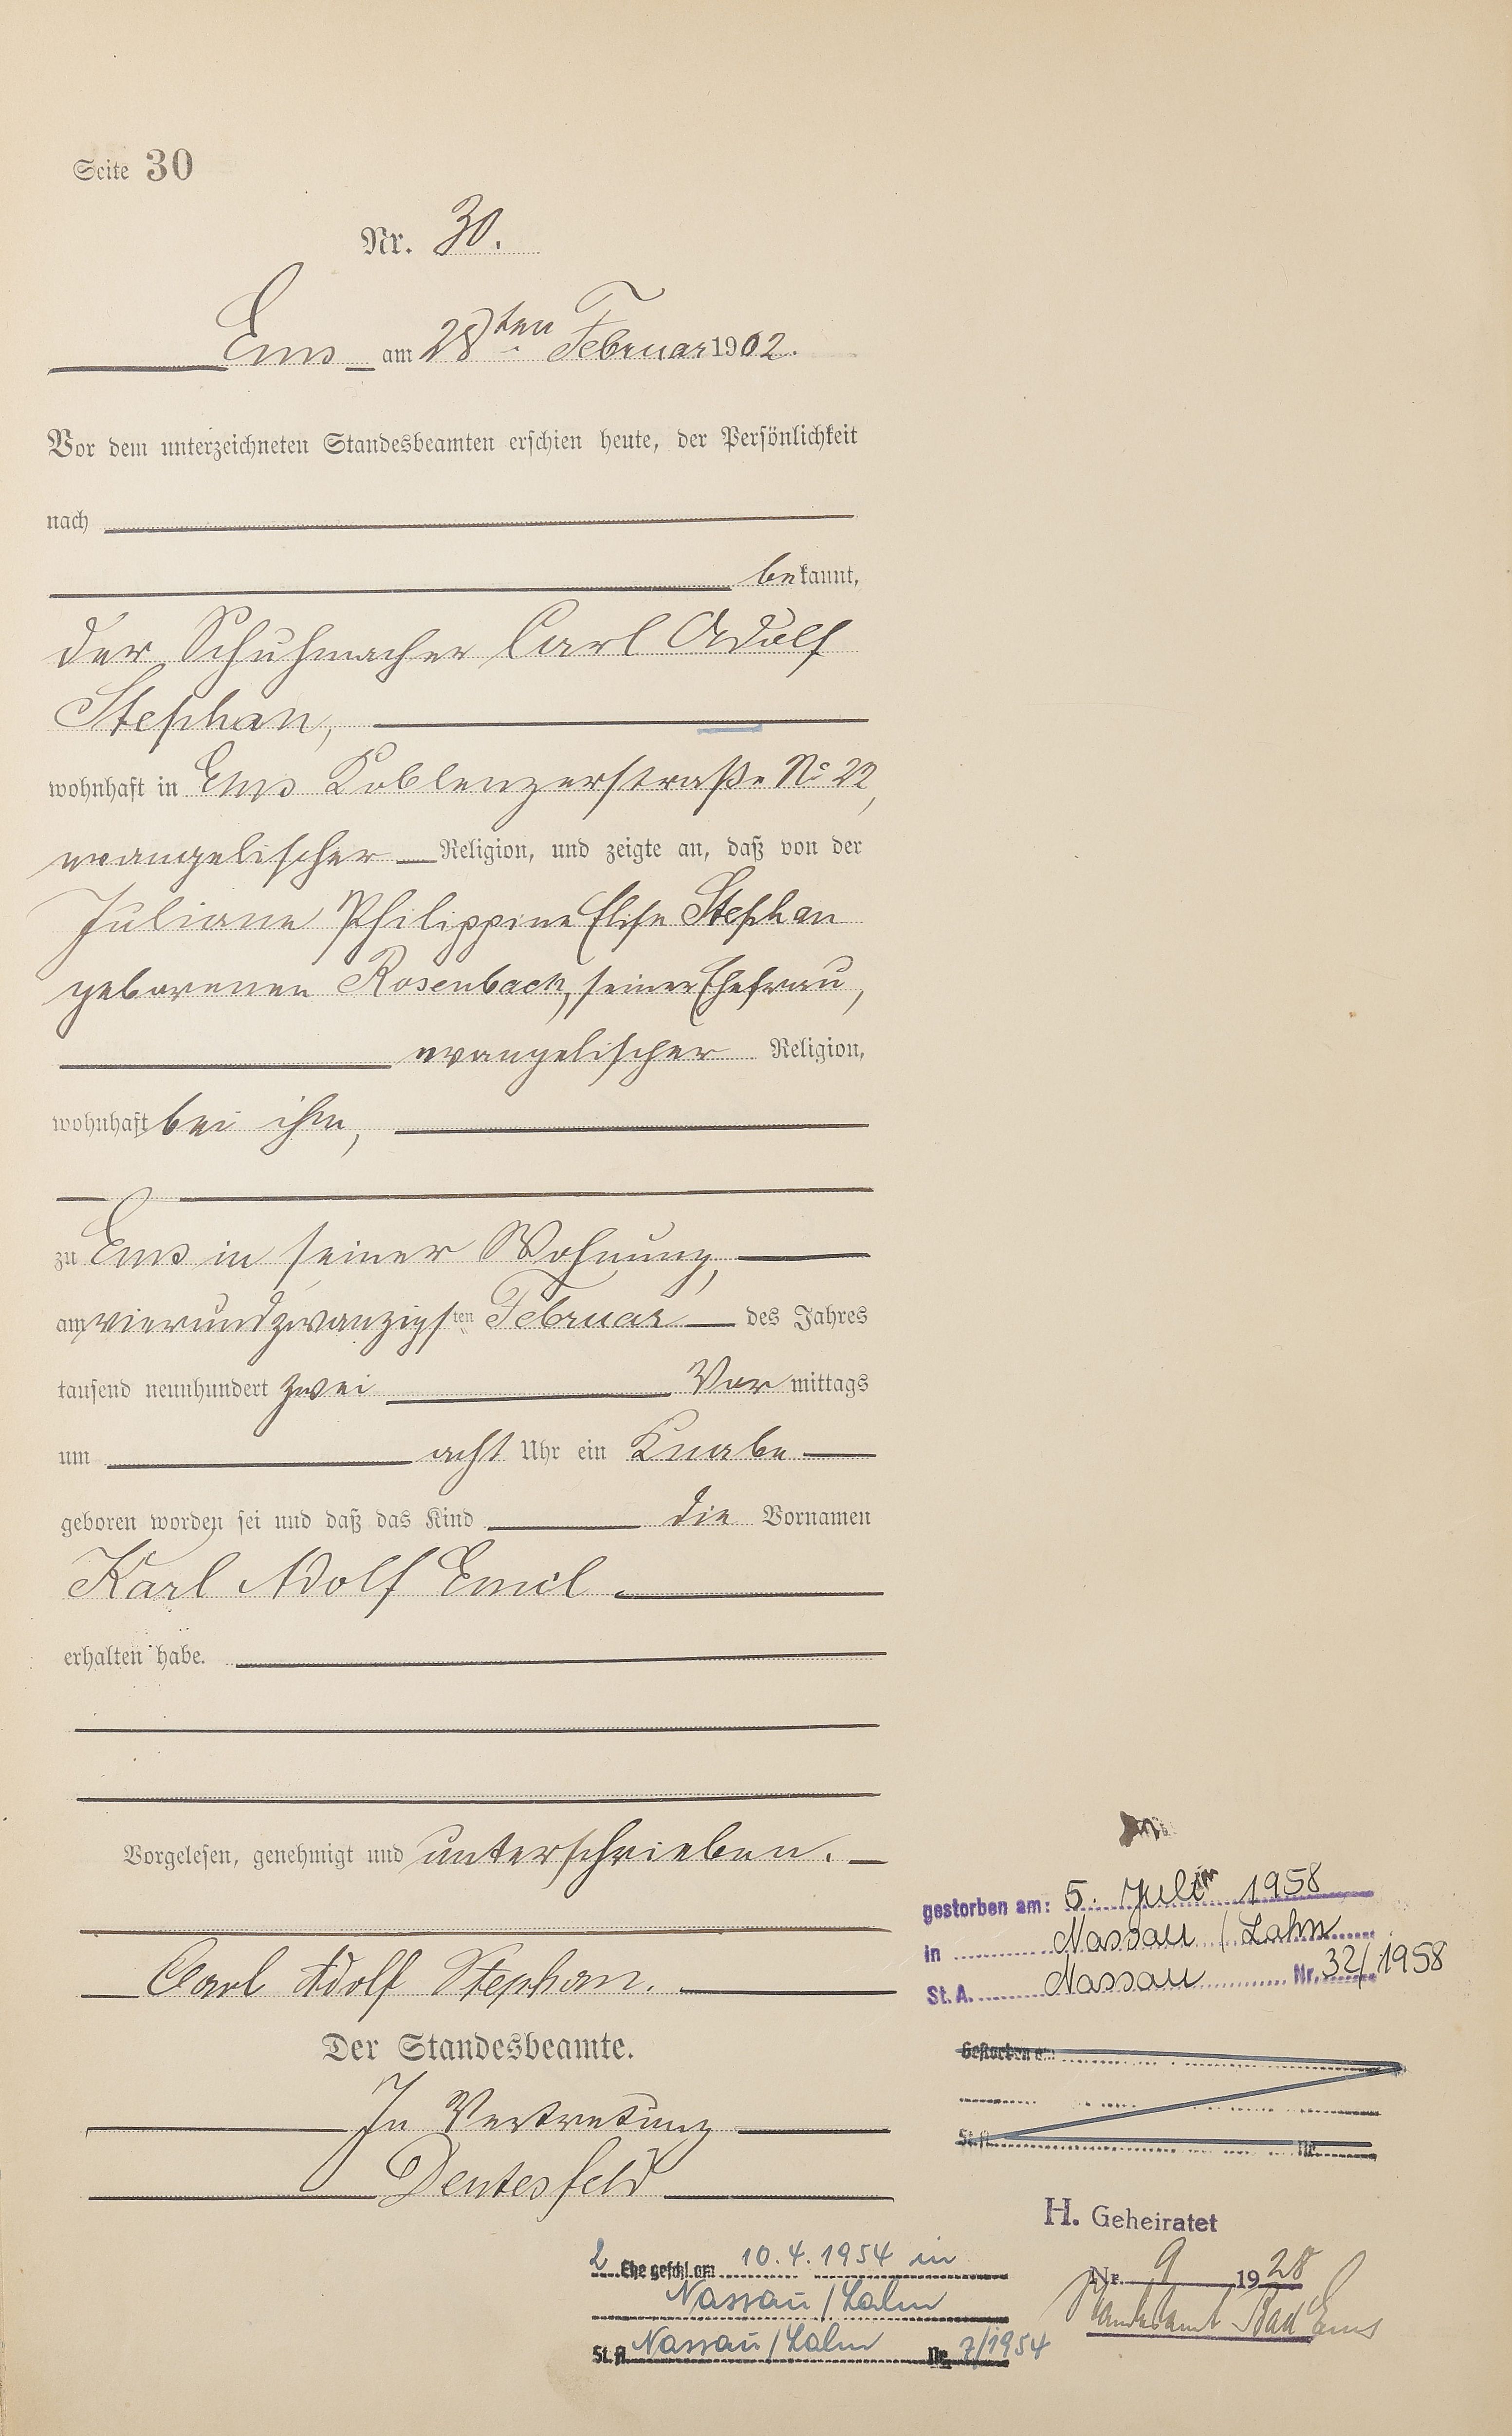 Seite 30
Nr. 30.
Ems am 28ten Februar 1902.
Vor dem unterzeichneten Standesbeamten erschien heute, der Persönlichkeit
nach
bekannt,
der Schuhmacher Carl Adolf
Stephan,
wohnhaft in Ems Koblenzerstraße No 22,
evangelischer Religion, und zeigte an, daß von der
Juliane Philippine Elise Stephan
geborenen Rosenbach, seiner Ehefrau,
evangelischer Religion,
wohnhaft bei ihm,
zu Ems in seiner Wohnung,
am vierundzwanzigsten Februar des Jahres
tausend neunhundert zwei Vormittags
um acht Uhr ein Knabe
geboren worden sei und daß das Kind die Vornamen
Karl Adolf Emil
erhalten habe.
Vorgelesen, genehmigt und unterschrieben.
Carl Adolf Stephan.
Der Standesbeamte.
In Vertretung
gestorben am: 5. Juli 1958
in Nassau / Lahn
St. A. Nassau Nr. 32/1958
Gestorben am
St. A. Nr.
H. Geheiratet
Nr. 9 1928
Standesamt Bad Ems
2. Ehe geschl. am 10.4.1954 in
Nassau / Lahn
St. A. Nassau / Lahn Nr. 7/1954